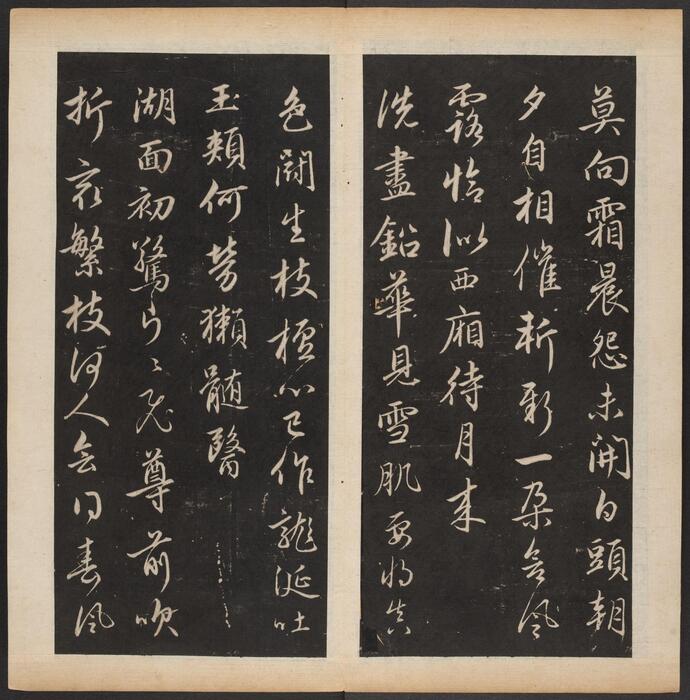 莫向霜晨怨未開白頭朝
夕自相催斬新一朵含風
露恰似西廂待月來
洗盡鉛華見雪肌要將真
色鬪生枝檀心已作龍涎吐
玉頰何勞獺髓醫
湖面初驚片〻飛尊前吹
折最繁枝何人會得春風